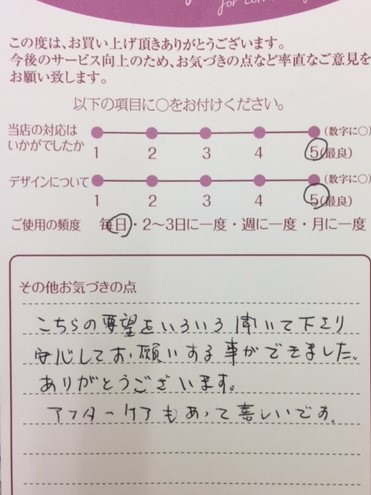 for com
この度は、お買い上げ頂きありがとうございます。
今後のサービス向上のため、お気づきの点など率直なご意見を
お願い致します。
以下の項目に○をお付けください。
当店の対応は
いかがでしたか
(数字に○)
1 2 3 4 5(最良)
デザインについて
(数字に○)
1 2 3 4 5(最良)
ご使用の頻度 毎日・2〜3日に一度・週に一度・月に一度
その他お気づきの点
こちらの要望をいろいろ聞いて下さり
安心してお願いする事ができました。
ありがとうございます。
アフターケアもあって喜しいです。